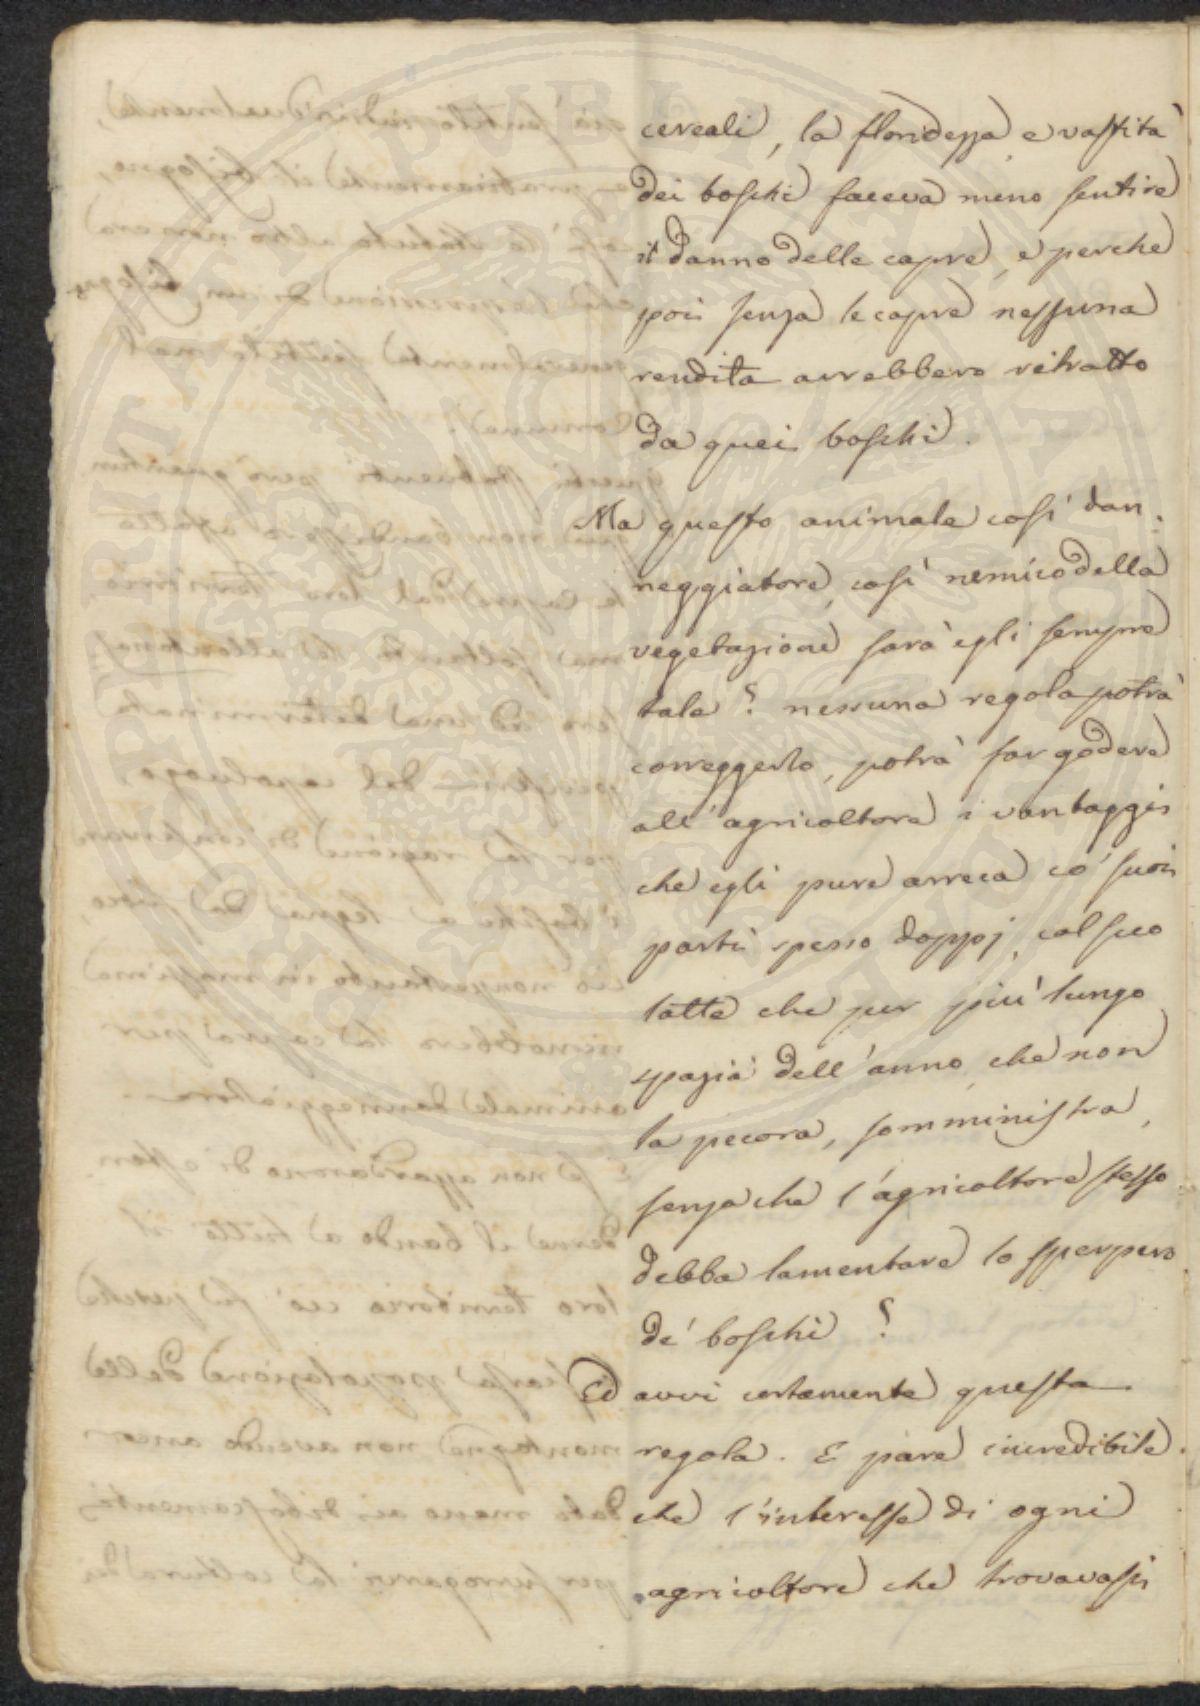 cereali, la floridezza, e vastità
dei boschi faceva meno sentire
il danno delle capre, e perche
poi senza le capre nessuna
rendita avrebbero ritratto
da quei boschi.
Ma questo animale così dan-
neggiatore, così nemico della
vegetazione sarà egli sempre
tale? nessuna regola potrà
correggerlo, potrà far godere
all'agricoltore i vantaggi
che egli pure arreca co' suoi
parti spesso doppj, col suo
latte che per più lungo
spazio dell'anno, che non
la pecora, somministra,
senza che l'agricoltore stesso
debba lamentare lo sperpero
de' boschi?
Ed avvi certamente questa
regola. E pare incredibile
che l'interesse di ogni
agricoltore che trovavasi